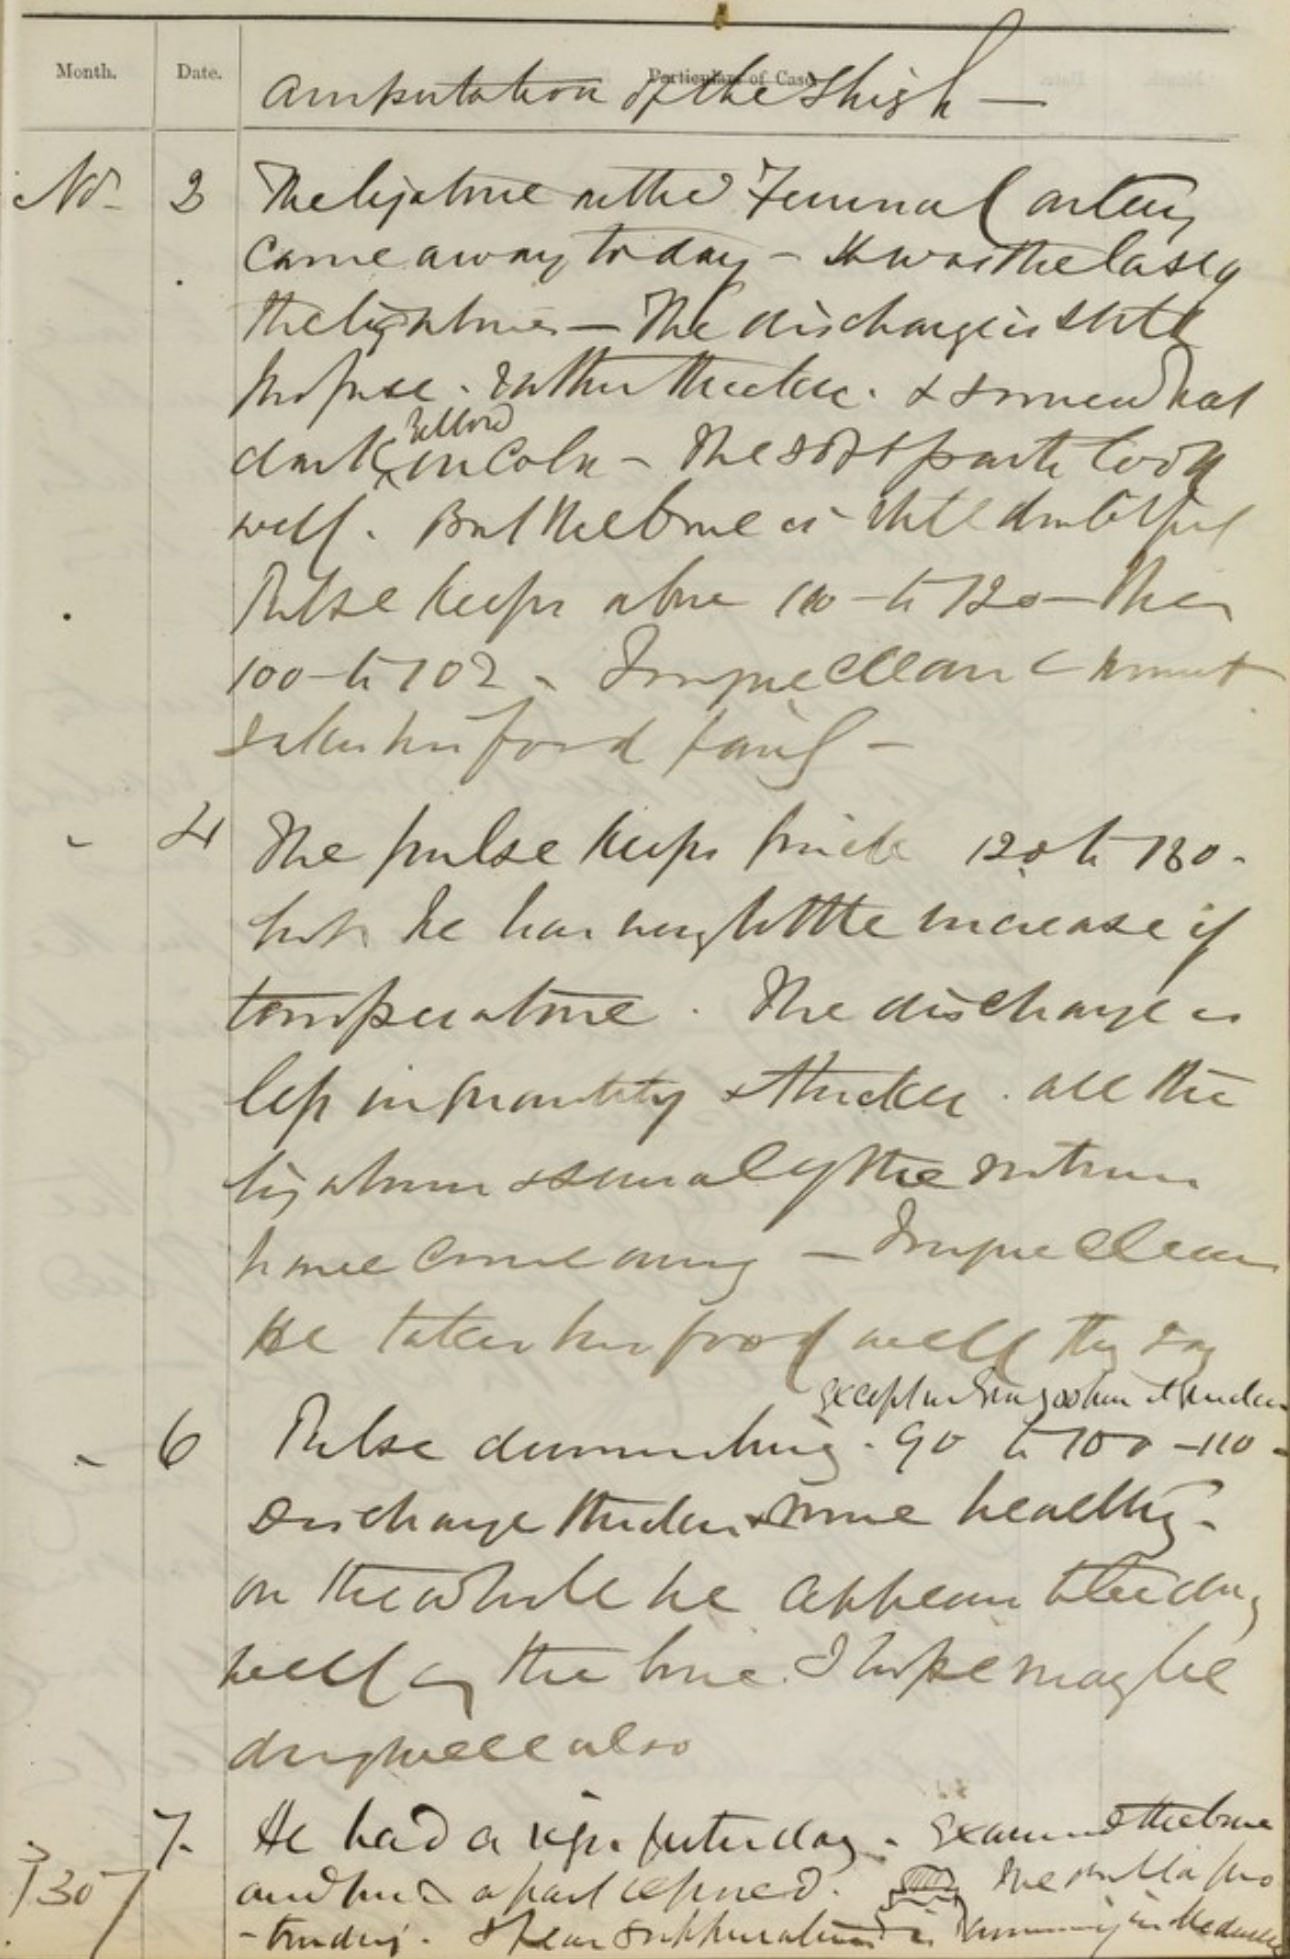 Month. Date. Particulars of Case
Amputation of the Thigh —
Nov 2 The ligature on the Femoral artery
came away today – It was the last of
the ligatures – The discharge is still
profuse. rather thicker. & somewhat
dark yellow in color – The soft parts look
well. But the bone is still doubtful
Pulse keeps above 110 to 120 – Ther
100 to 102 – Tongue clean &
takes his food fairly –
" 4 The pulse keeps quick 120 to 130 -
but he has very little increase of
temperature. The discharge is
less in quantity & thicker. all the
ligatures & several of the sutures
have come away – Tongue clean
He takes his food well they say
except
" 6 Pulse diminishing. 90 to 100 – 110 -
Discharge thicker & more healthy -
on the whole he appears to be doing
well & the bone I hope may be
doing well also
7. He had a rigor yesterday. Examined the bone
and find a part exposed. The medulla pro
-truding. I fear suppuration is
130